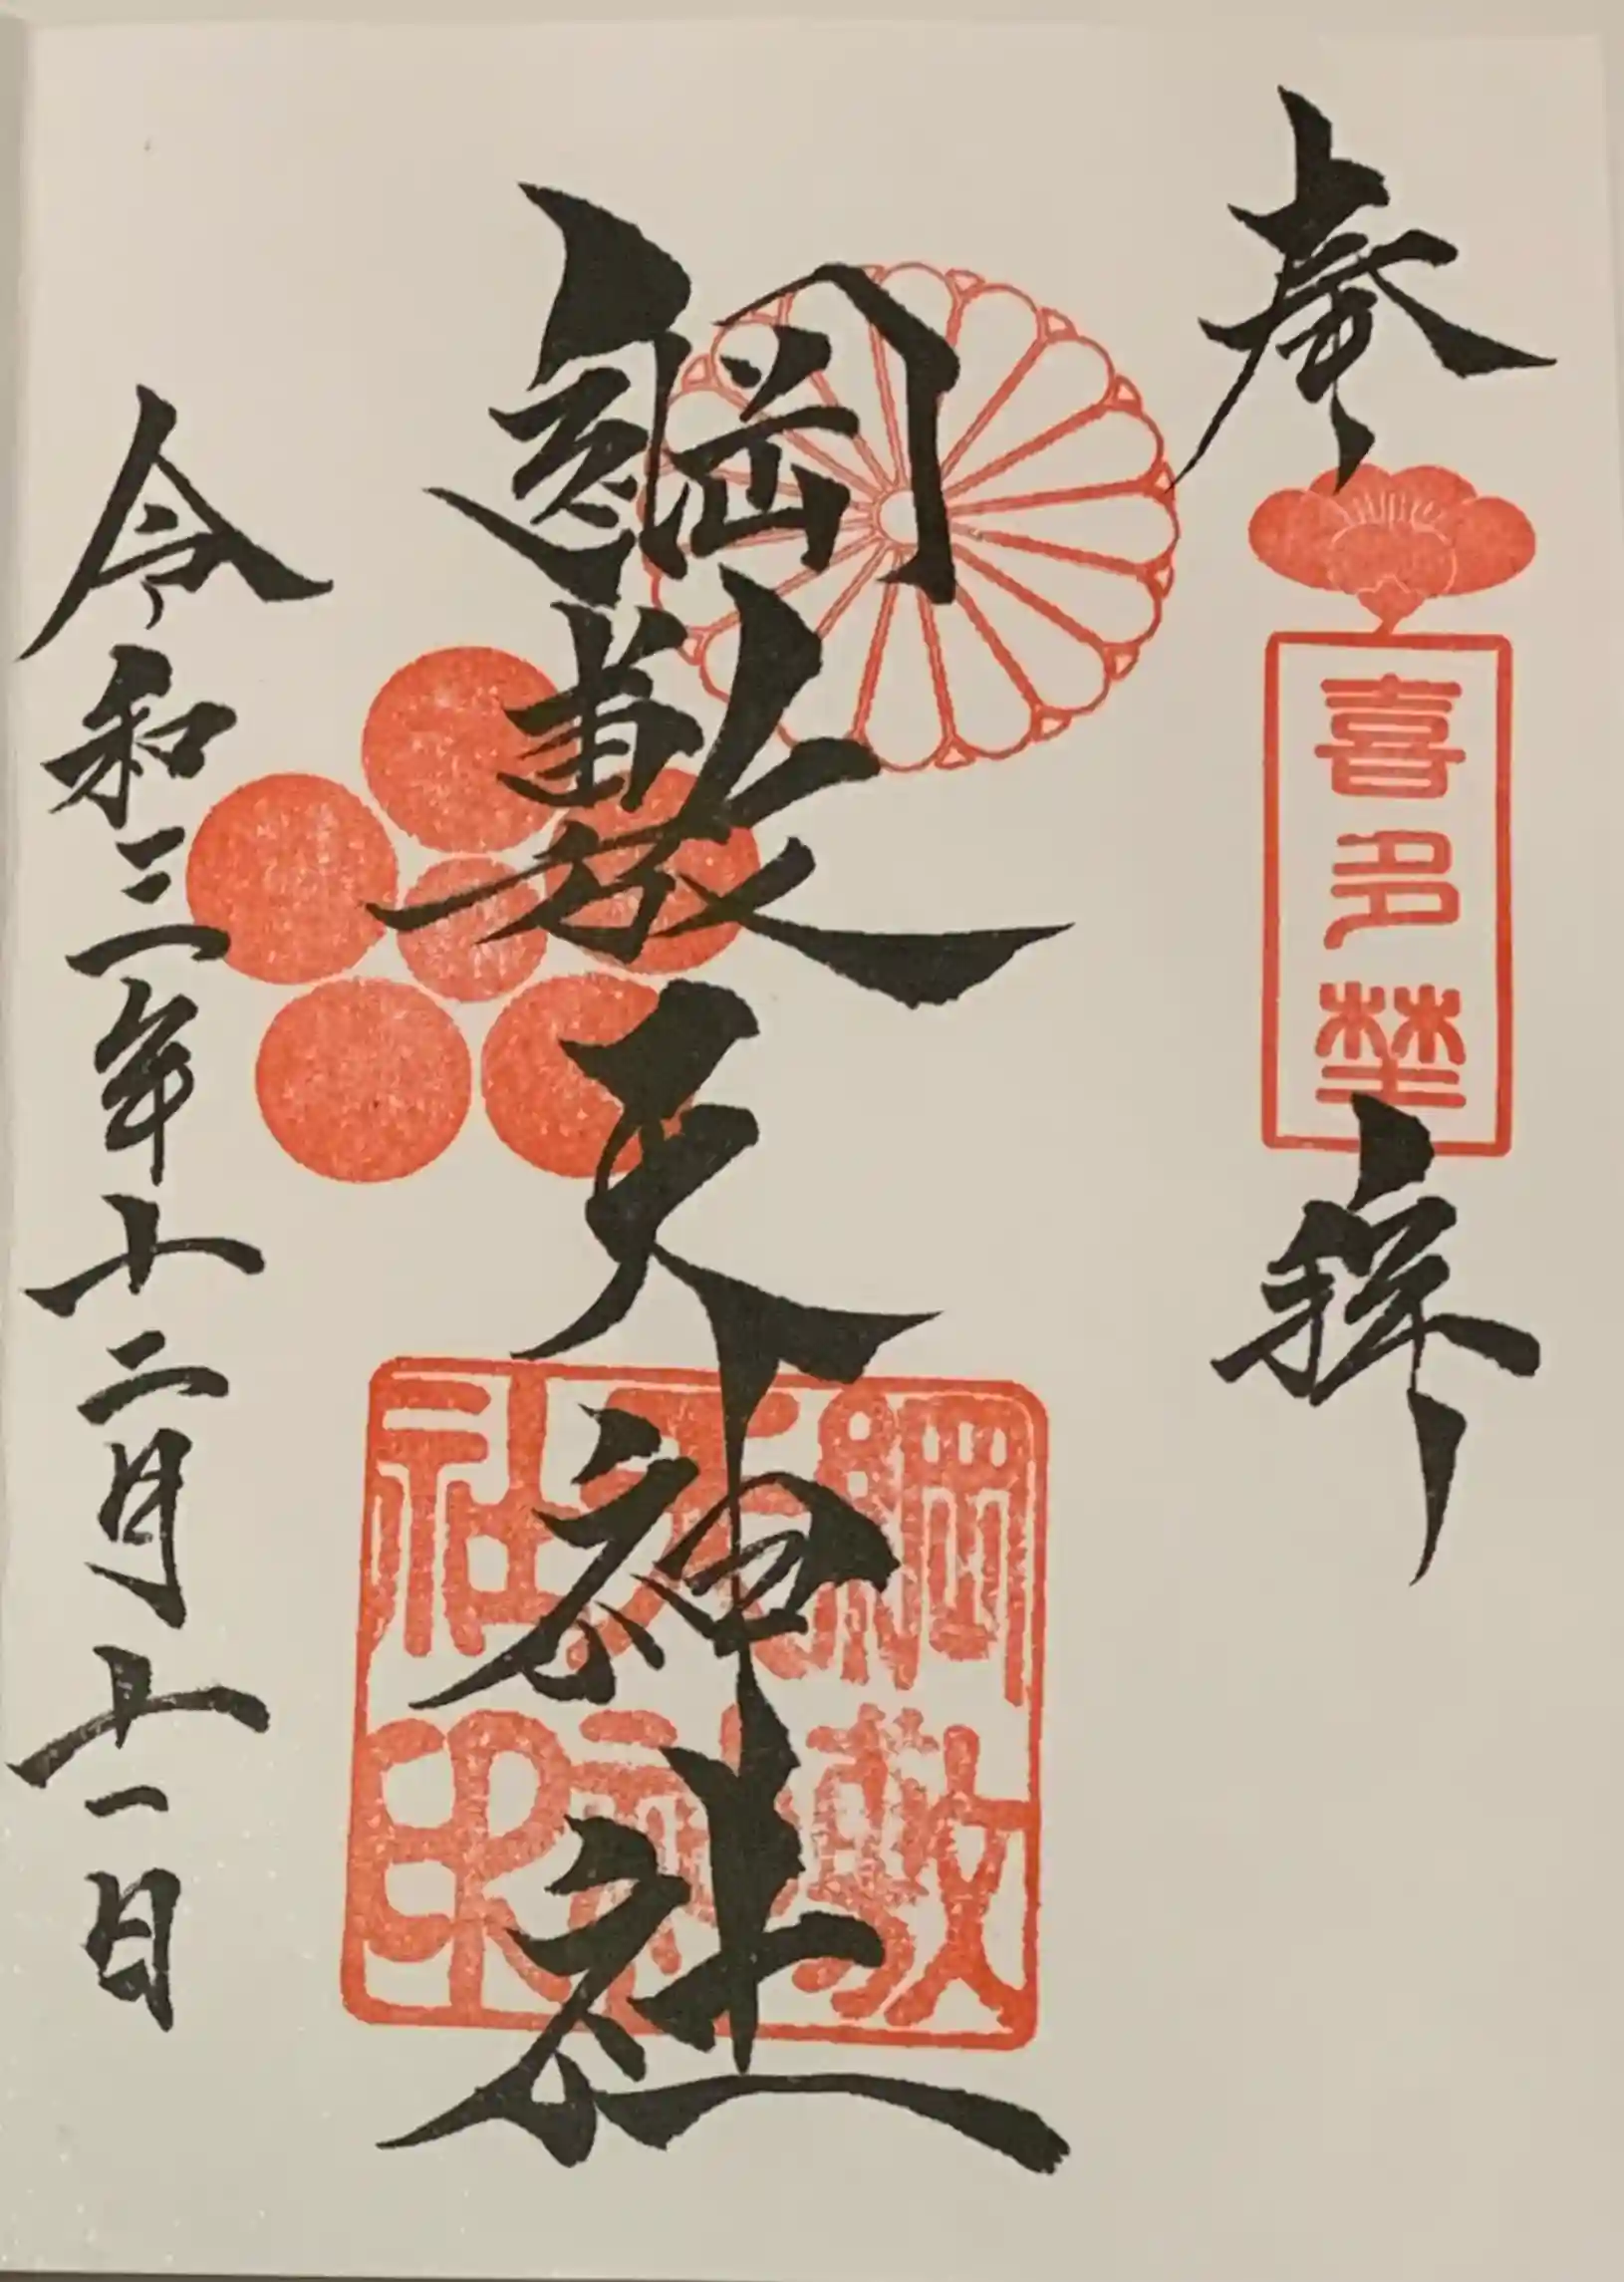 奉拝
喜多埜
綱敷天神社
綱敷天神社印
令和三年十二月十一日